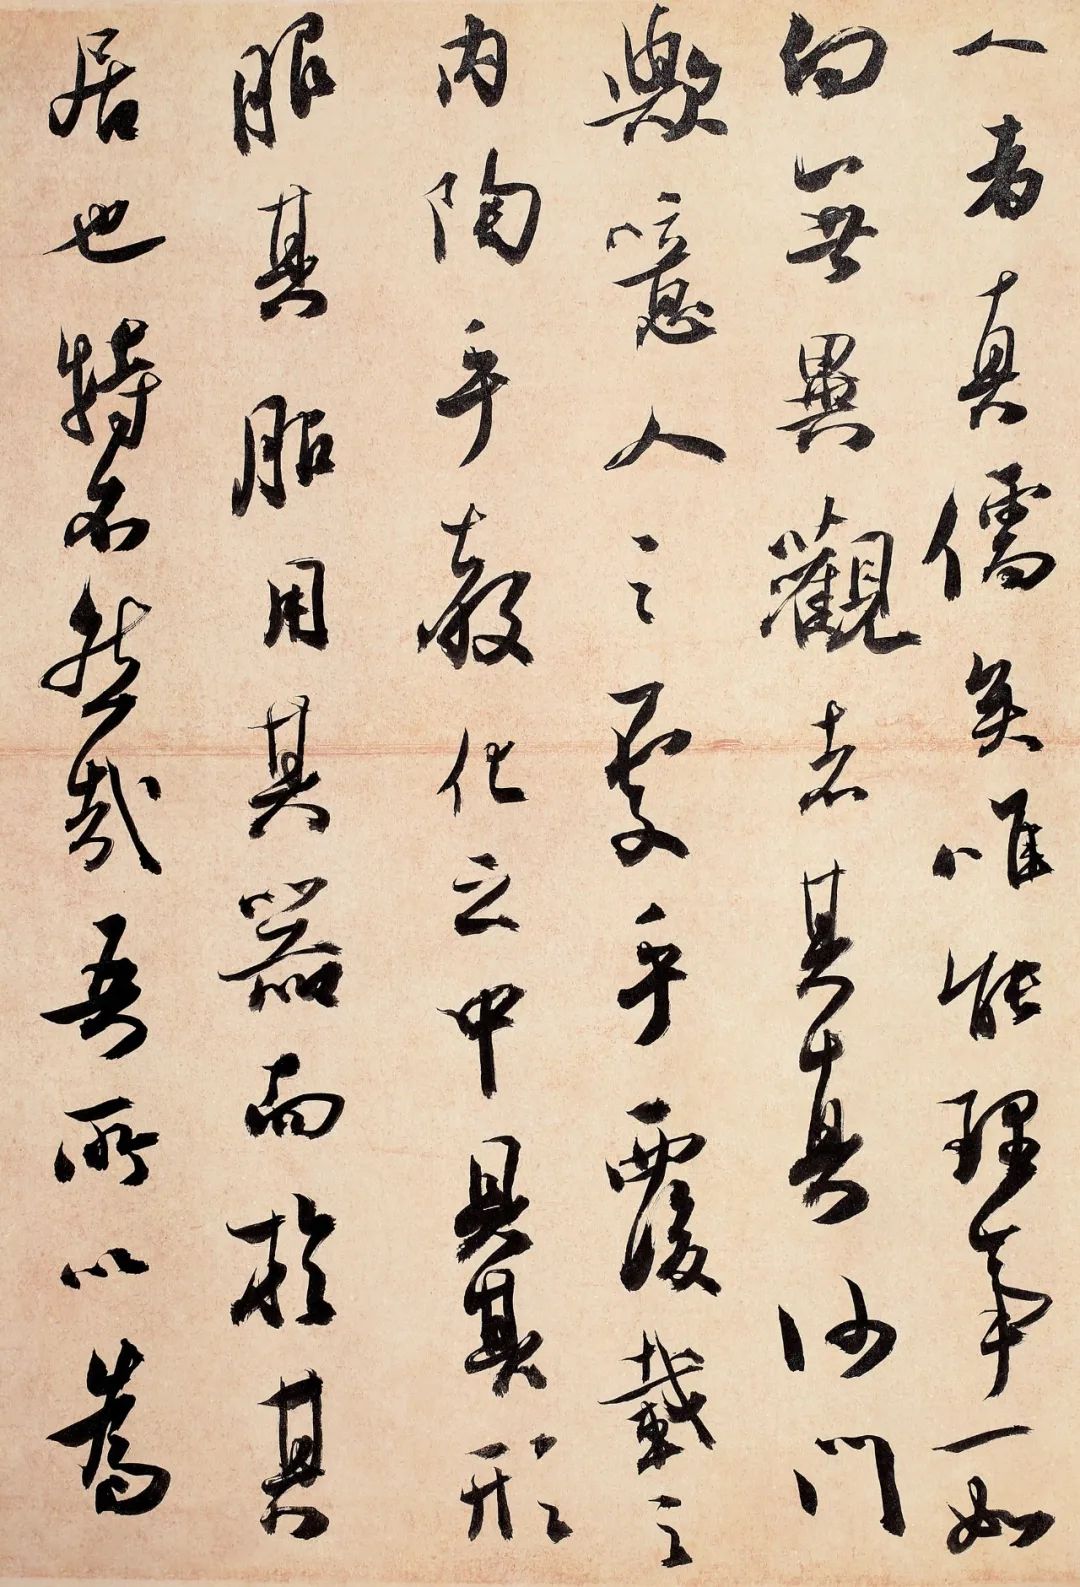 人者真儒矣唯能理事一如
向無異觀者其真真沙門
歟噫人之處乎覆載之
内陶乎教化之中具其形
服其服用其器而於其
居也特不然哉吾所以為